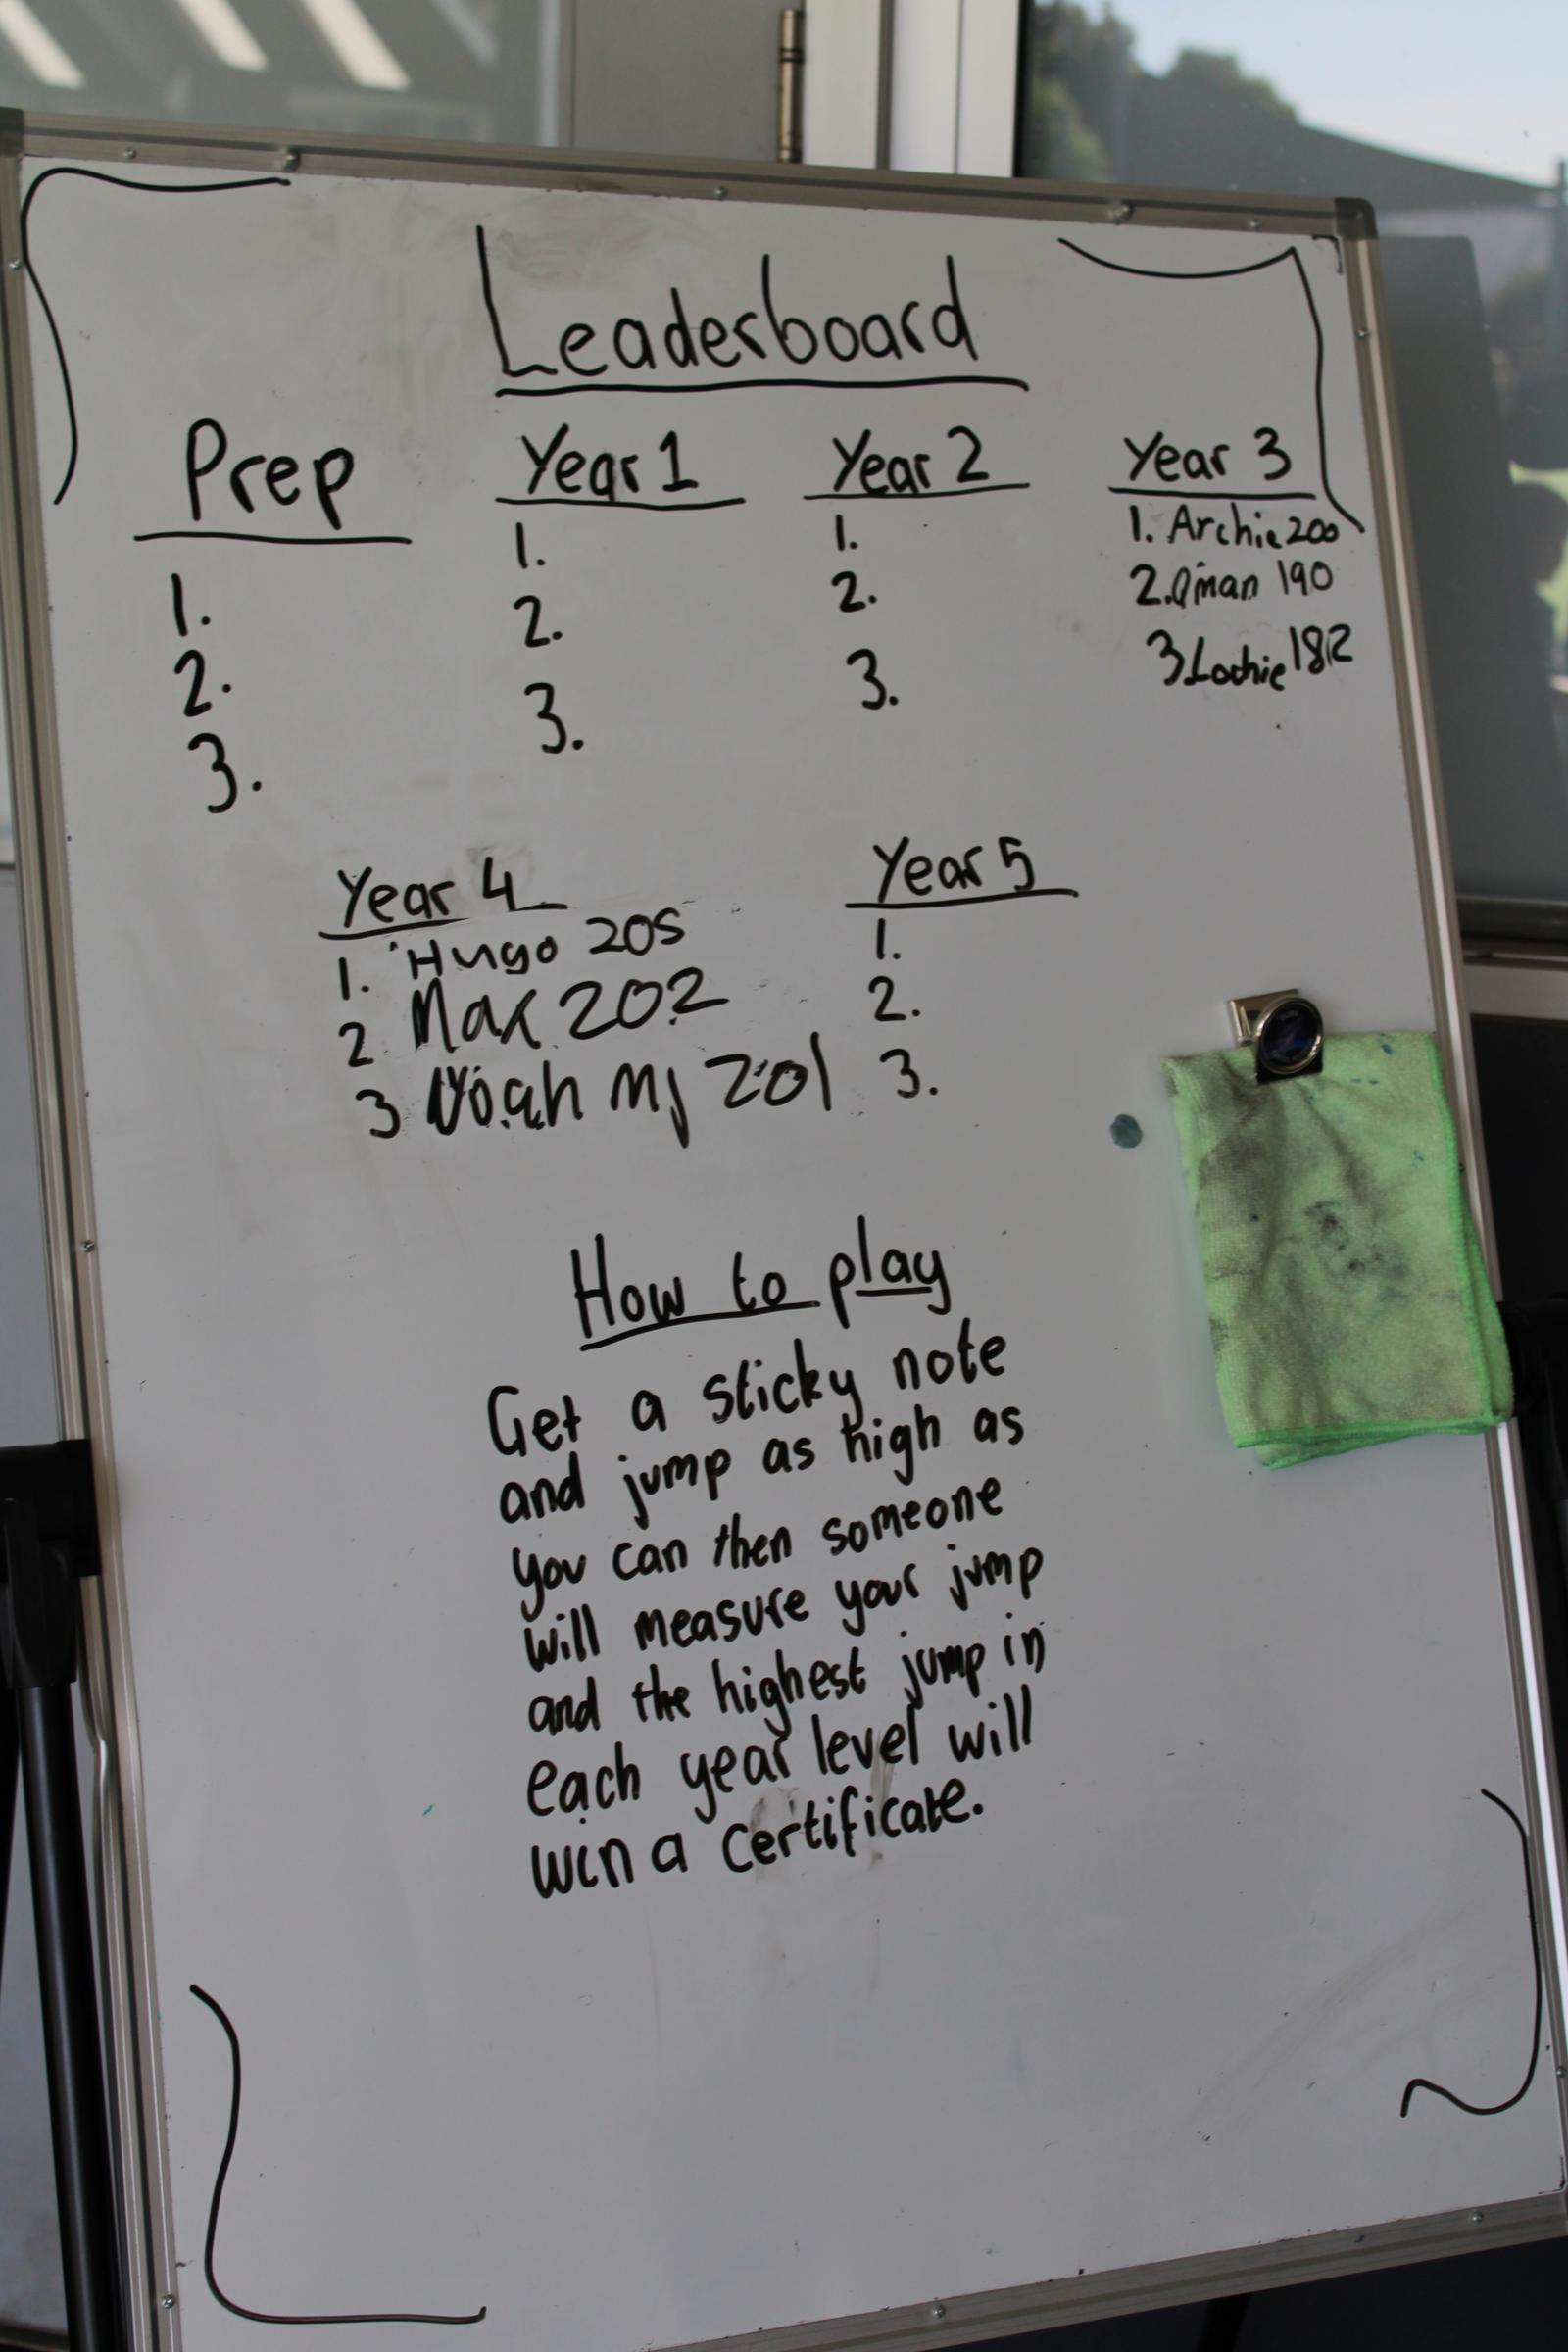 Leaderboard
Prep
1.
2.
3.
Year 1
1.
2.
3.
Year 2
1.
2.
3.
Year 3
1. Archie 200
2. 190
3 Lochie 182
Year 4
1. Hugo 205
2 Max 202
3 Noah MJ 201
Year 5
1.
2.
3.
How to play
Get a sticky note
and jump as high as
you can then someone
will measure your jump
and the highest jump in
each year level will
win a certificate.